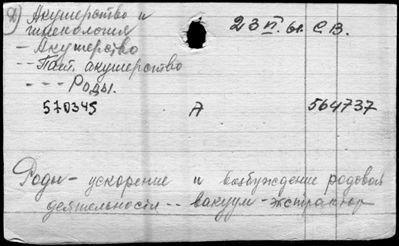 2) Акушерство и
гинекология
23 VI. 61. С.В.
- Акушерство
-- Пат. акушерство
--- Роды.
570345 А 564737
Роды - ускорение и возбуждение родовой
деятельности -- вакуум-экстрактор